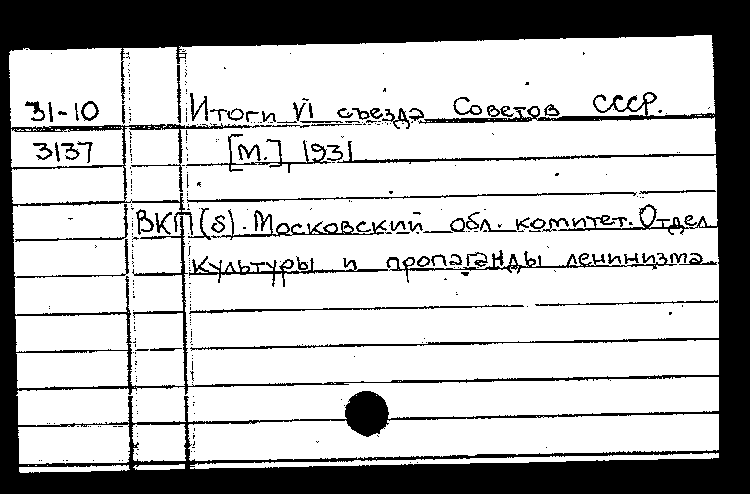 31-10 Итоги VI съезда Советов СССР.
3137 [М.], 1931
ВКП(б). Московский обл. комитет. Отдел
культуры и пропаганды ленинизма.